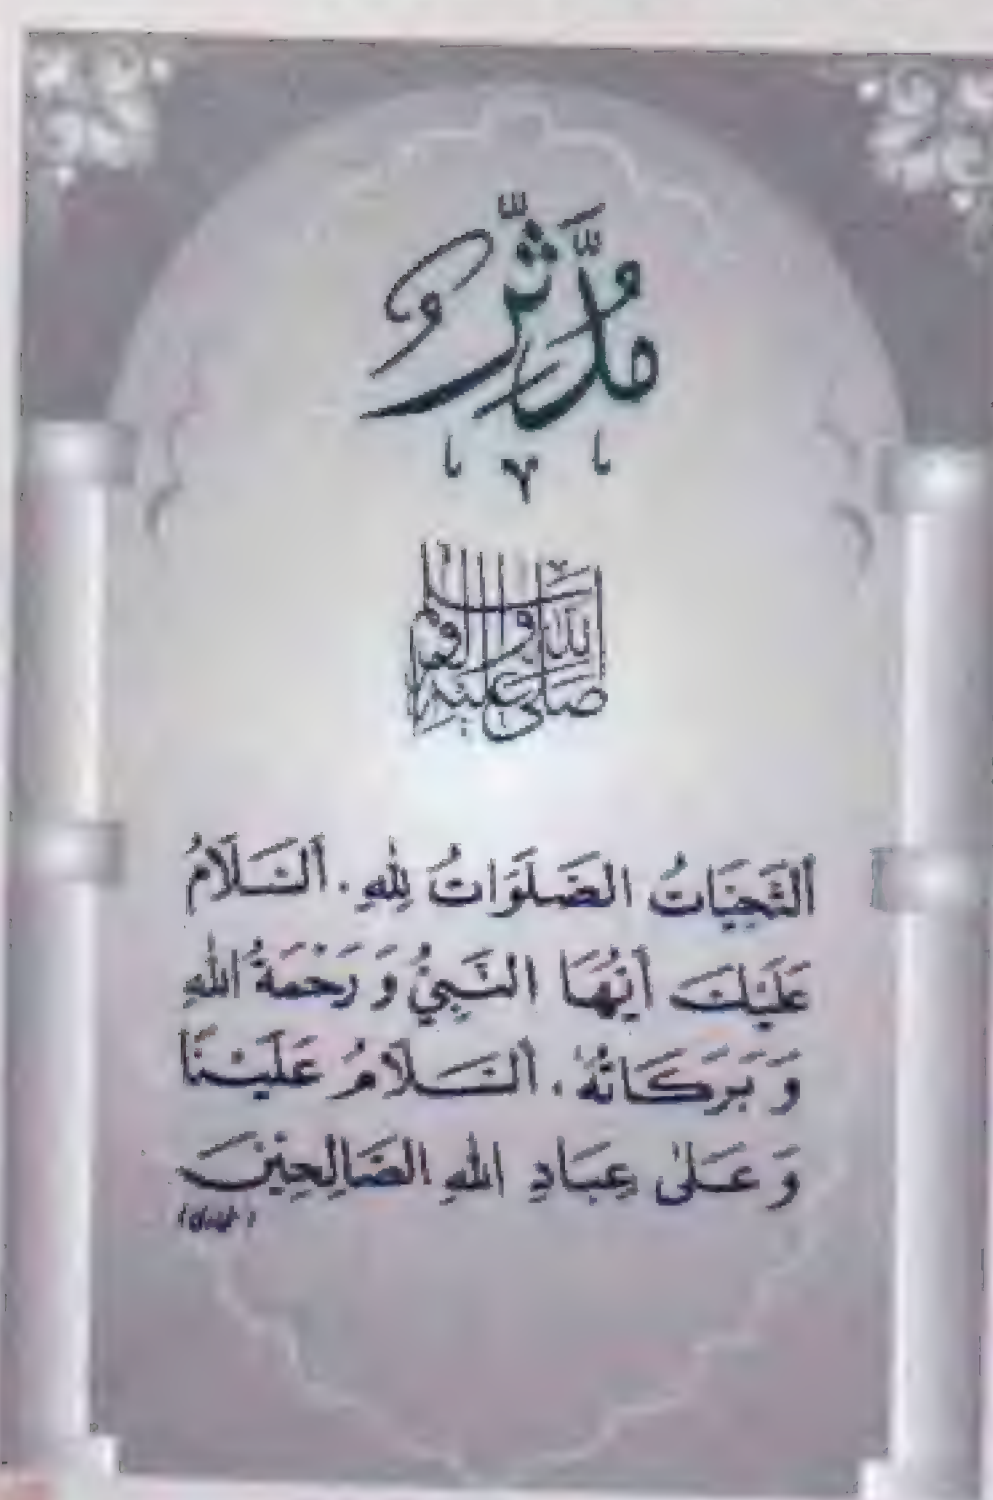 مُدَّثِّرٌ
صَلَّى اللهُ عَلَيْهِ وَآلِهِ وَسَلَّمَ
اَلتَّحِيَّاتُ الصَّلَوَاتُ لِلّٰهِ. اَلسَّلَامُ
عَلَيْكَ أَيُّهَا النَّبِيُّ وَ رَحْمَةُ اللهِ
وَ بَرَكَاتُهُ. اَلسَّلَامُ عَلَيْنَا
وَ عَلٰى عِبَادِ اللهِ الصَّالِحِيْنَ